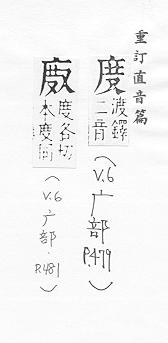 重訂直音篇
度 渡鐸二音
(V.6
广部
P.479)
度各切
本度同
(V.6
广部.
P.481)